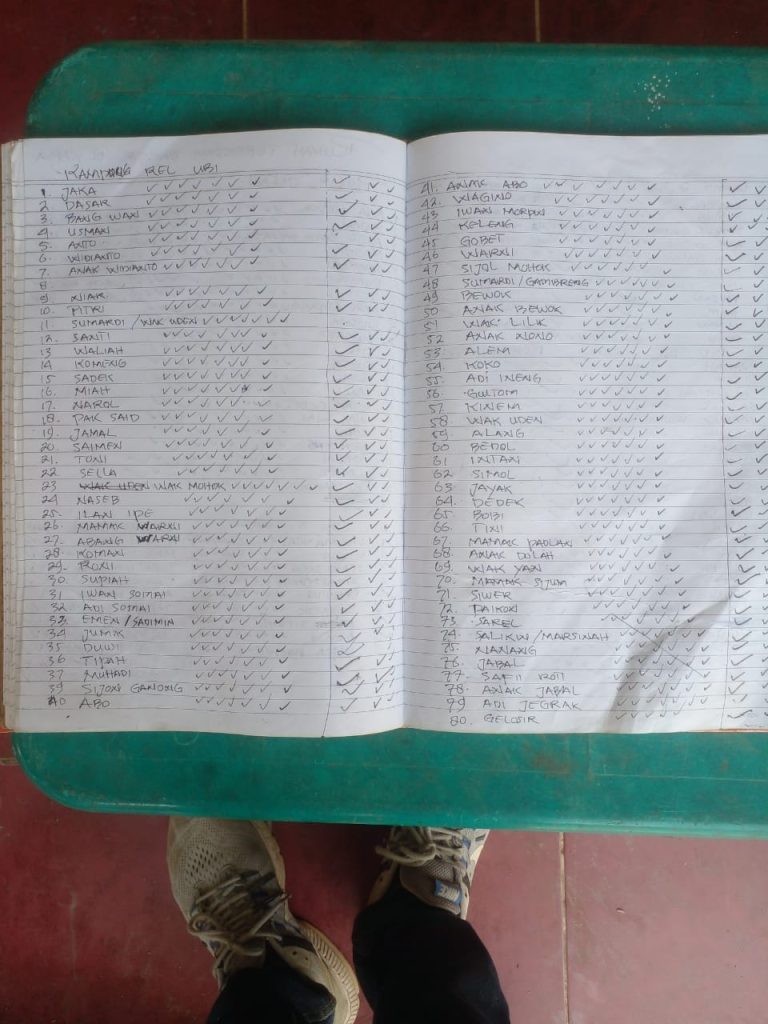 KAMPUNG REL UBI
1. JAKA
2. DASAR
3. BANG WAN
4. USMAN
5. ANTO
6. WIDIANTO
7. ANAK WIDIANTO
8
9. NIAR
10. FITRI
11. SUMARDI / WAK UDEN
12. SANTI
13 WALIAH
14 KOMENG
15 SADEK
16. MIAH
17. NAROL
18. PAK SAID
19. JAMAL
20. SAIMEN
21. TONI
22 SELLA
23 WAK UDEN WAK MOHOK
24 NASEB
25. ILAN IPE
26 MAMAK WARNI
27. ABANG WARNI
28. KOMAN
29. RONI
30. SUPIAH
31 IWAN SOMAI
32 ADI SOMAI
33. EMEN / SADIMIN
34 JUMIK
35 DUWI
36 TIJAH
37 MUHADI
39 SIJONI GANONG
40 ABO
41. ANAK ABO
42. WAGINO
43 IWAN
44 KELENG
45 GOBET
46 WARNI
47 SIJOL MOHOK
48 SUMARDI / GAMBRENG
49 BEWOK
50 ANAK BEWOK
51 WAK LILIK
52 ANAK NONO
53. ALEM
54. KOKO
55. ADI INENG
56. GULTOM
57. KINEM
58. WAK UDEN
59 ALANG
60 BEDOL
61 INTAN
62. SIMOL
63 JAYAK
64. DEDEK
65. BOBI
66. TINI
67. MAMAK PADLAN
68. ANAK DOLAH
69. WAK YAN
70. MAMAK SIJUM
71. SIWER
72. PAIKON
73 SAREL
74. SALIKIN / MARSINAH
75. NANANG
76. JABAL
77. SAFII ROTI
78. ANAK JABAL
79 ADI JEGRAK
80. GELOSIR